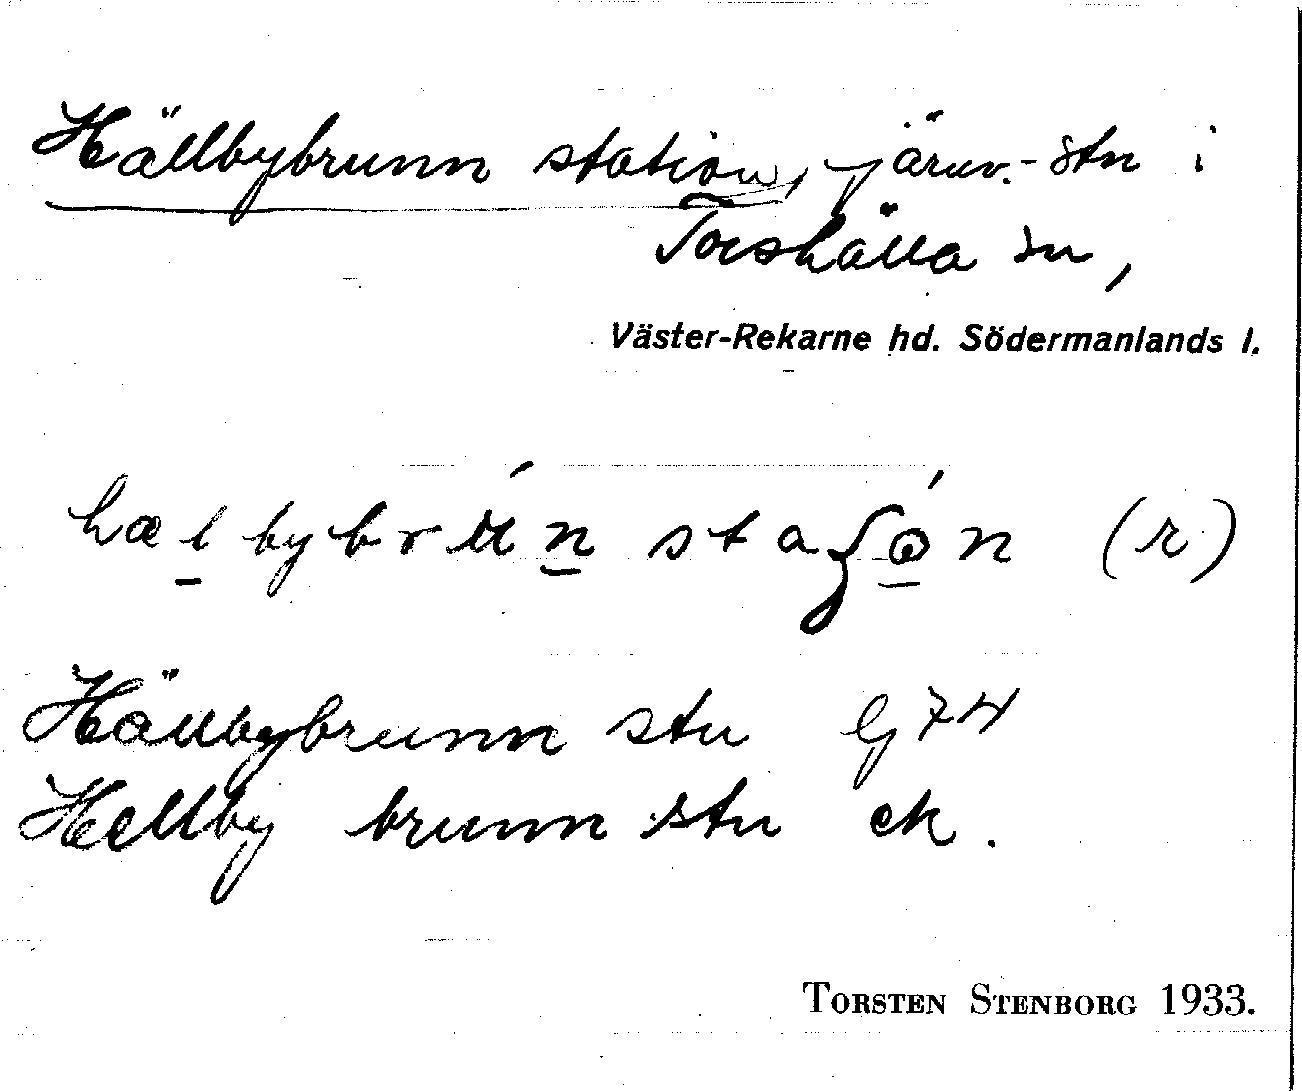 Hällbybrunn station, järnv.-stn i
Torshälla sn,
Väster-Rekarne hd. Södermanlands l.
hælbybrún staʃón (r)
Hällbybrunn stn Gj 74
Hellby brunn stn ek.
TORSTEN STENBORG 1933.